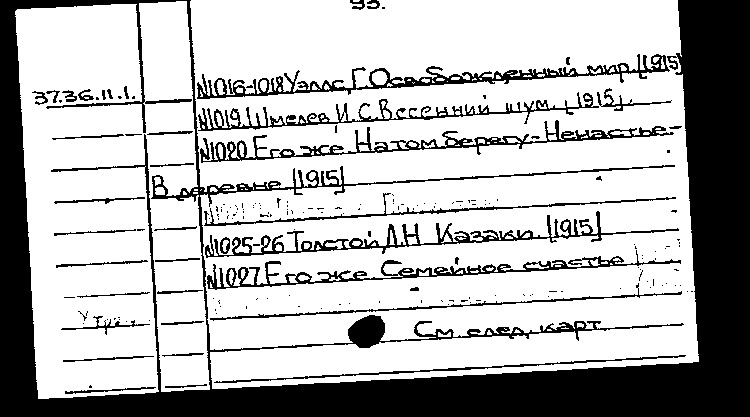 93.
37.36.11.1. N1016-1018 Уэллс, Г. Освобожденный мир. [1915]
N1019. Шмелев, И.С. Весенний шум. [1915].
N1020. Его же. На том берегу.- Ненастье.-
В деревне [1915]
N1025-26 Толстой, Л.Н. Казаки. [1915]
N1027. Его же. Семейное счастье
См. след. карт.